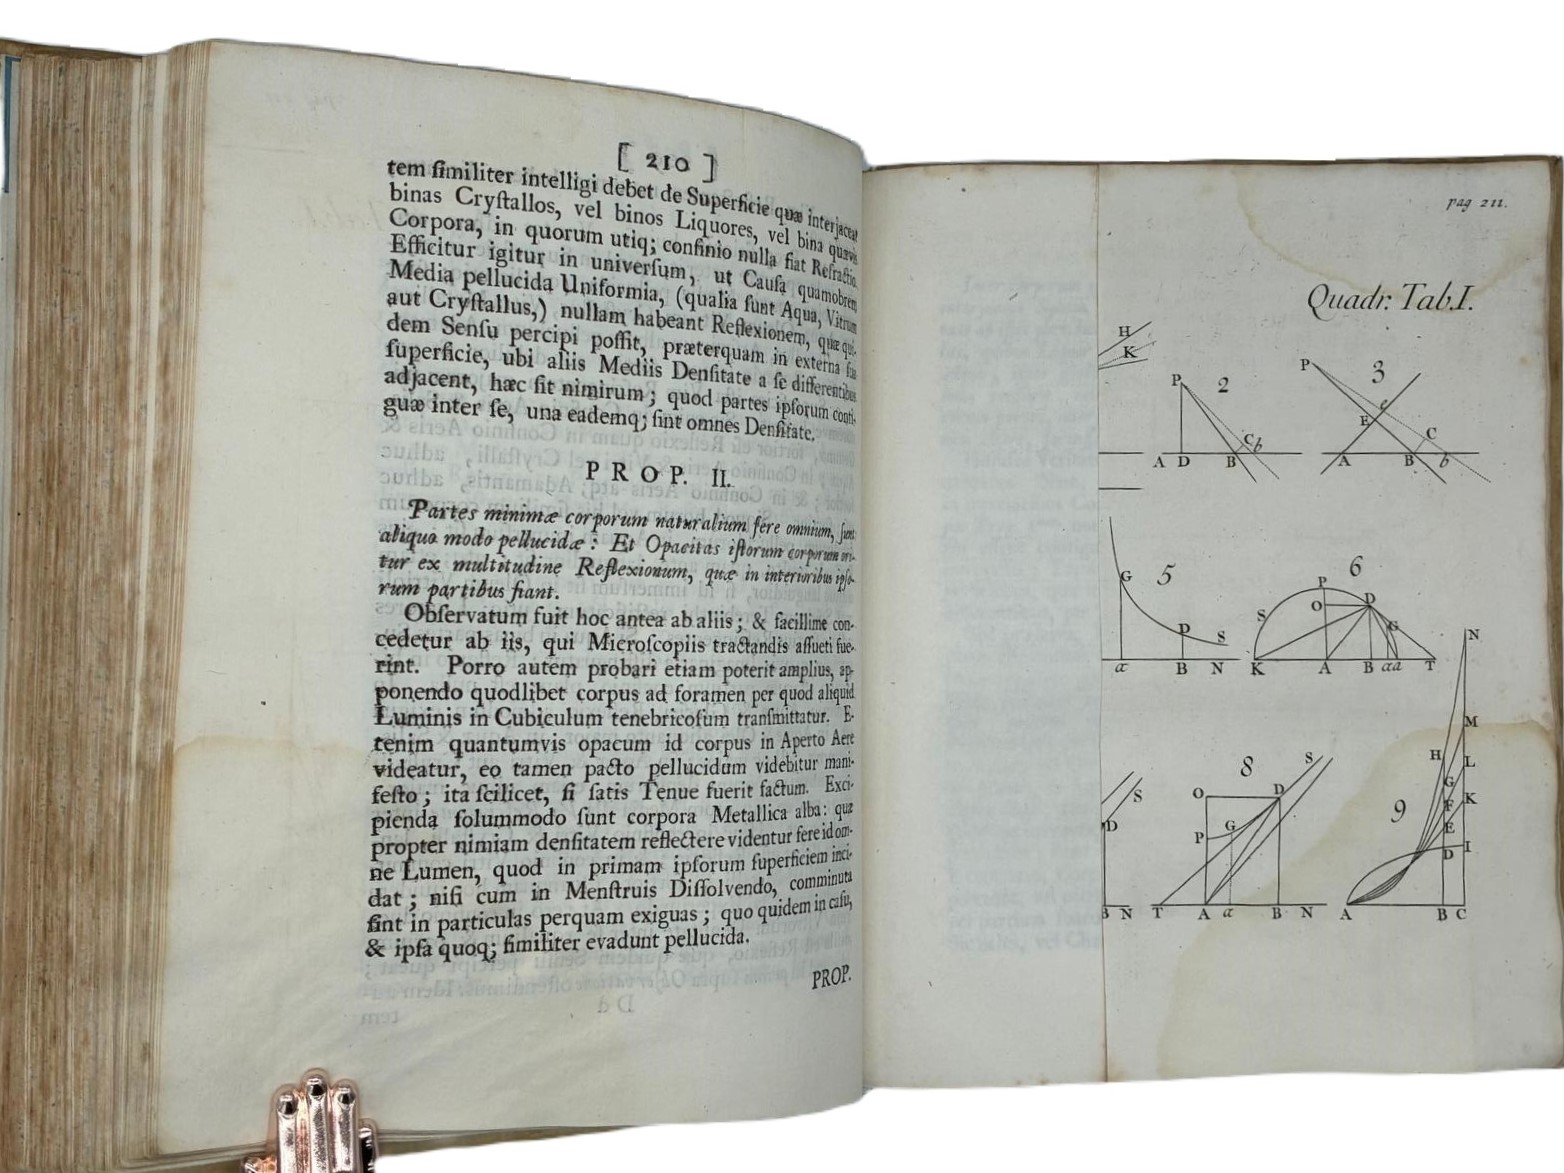 [ 210 ]
tem ſimiliter intelligi debet de Superficie quæ interjaceat
binas Cryſtallos, vel binos Liquores, vel bina quævis
Corpora, in quorum utiq; confinio nulla fiat Refractio.
Efficitur igitur in univerſum, ut Cauſa quamobrem
Media pellucida Uniformia, (qualia ſunt Aqua, Vitrum
aut Cryſtallus,) nullam habeant Reflexionem, quæ qui-
dem Senſu percipi poſſit, præterquam in externa ſua
ſuperficie, ubi aliis Mediis Denſitate a ſe differentibus
adjacent, hæc ſit nimirum; quod partes ipſorum conti-
guæ inter ſe, una eademq; ſint omnes Denſitate.
PROP. II.
Partes minimæ corporum naturalium fere omnium, ſunt
aliquo modo pellucidæ: Et Opacitas iſtorum corporum ori-
tur ex multitudine Reflexionum, quæ in interioribus ipſo-
rum partibus fiant.
Obſervatum fuit hoc antea ab aliis; & facillime con-
cedetur ab iis, qui Microſcopiis tractandis aſſueti fue-
rint. Porro autem probari etiam poterit amplius, ap-
ponendo quodlibet corpus ad foramen per quod aliquid
Luminis in Cubiculum tenebricoſum tranſmittatur. E-
tenim quantumvis opacum id corpus in Aperto Aere
videatur, eo tamen pacto pellucidum videbitur mani-
feſto; ita ſcilicet, ſi ſatis Tenue fuerit factum. Exci-
pienda ſolummodo ſunt corpora Metallica alba: quæ
propter nimiam denſitatem reflectere videntur fere id om-
ne Lumen, quod in primam ipſorum ſuperficiem inci-
dat; niſi cum in Menſtruis Diſſolvendo, comminuta
ſint in particulas perquam exiguas; quo quidem in caſu,
& ipſa quoq; ſimiliter evadunt pellucida.
PROP.
pag 211.
Quadr: Tab.I.
H
K
P 2
C b
A D B
P 3
e
E C
A B b
G 5
D S
a B N
6
P
O D
S G
K A B a a T
N
M
H L
G
F K
E
D I
9
A B C
S
D
B N
8 S
O D
P G
T A a B N